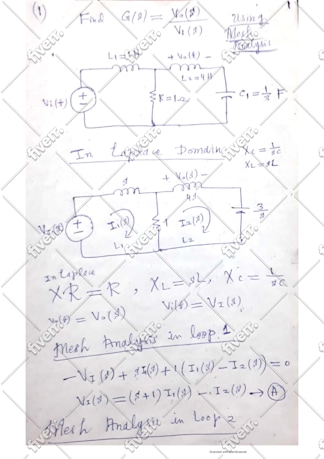 (1) Find G(s) = Vo(s) / VI(s) Using Mesh Analysis
+ Vo(t) -
L2 = 4H
VI(t)
R = 1Ω
In Laplace Domain
XC = 1/sC
XL = sL
s
+ Vo(s) -
4s
VI(s)
I1(s)
1
I2(s)
3/s
L1
L2
In Laplace
XR = R , XL = sL, XC = 1/sC
Vo(t) = Vo(s)
Vi(t) = VI(s)
Mesh Analysis in loop 1
-VI(s) + sI1(s) + 1(I1(s) - I2(s)) = 0
VI(s) = (s+1) I1(s) - I2(s) → (A)
Mesh Analysis in Loop 2